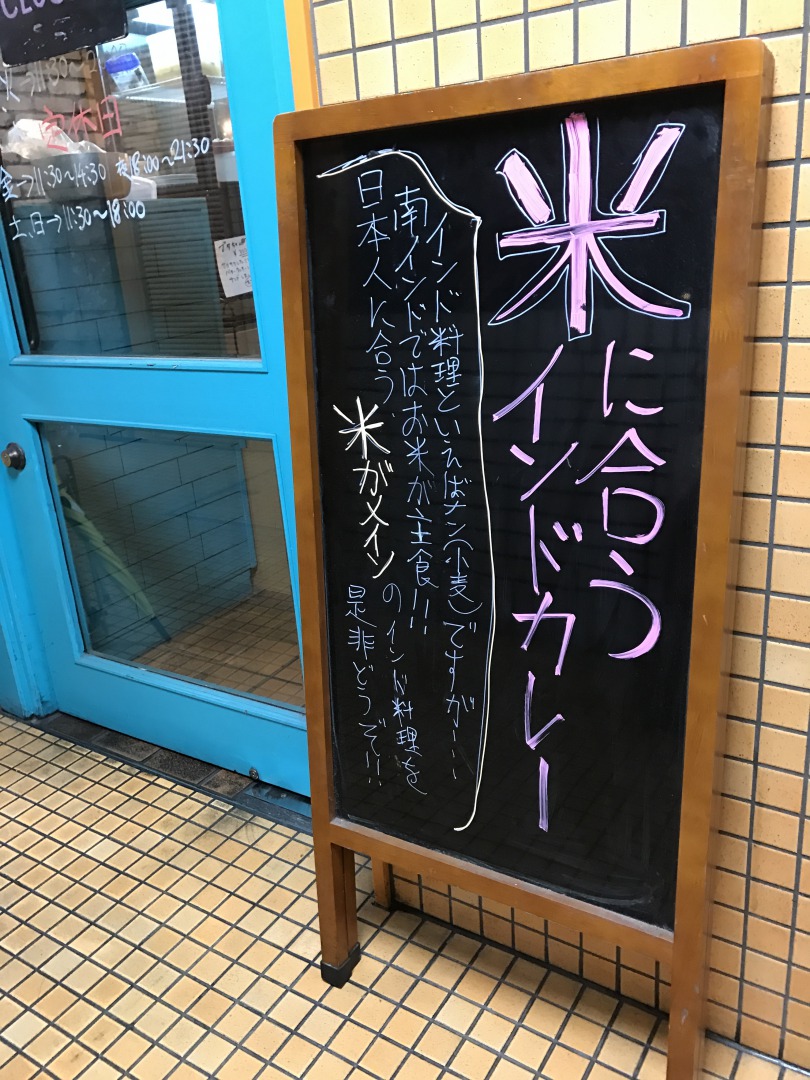 米に合う
インドカレー
インド料理といえばナン(小麦)ですが…
南インドではお米が主食!!
日本人に合う米がメインのインド料理を
是非どうぞ!!
定休日
金→11:30~14:30 夜18:00~21:30
土、日→11:30~18:00